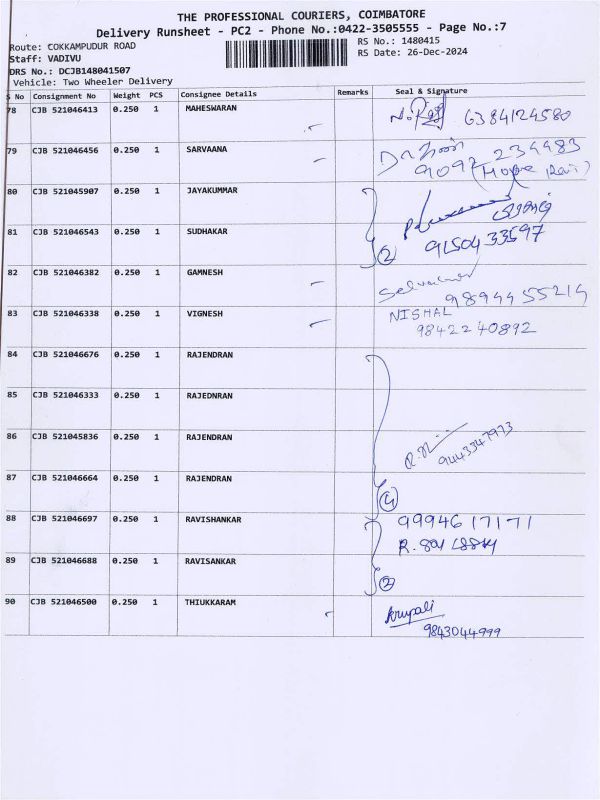 THE PROFESSIONAL COURIERS, COIMBATORE
Delivery Runsheet - PC2 - Phone No.:0422-3505555 - Page No.:7
Route: COKKAMPUDUR ROAD
Staff: VADIVU
DRS No.: DCJB148041507
Vehicle: Two Wheeler Delivery
RS No.: 1480415
RS Date: 26-Dec-2024
S No Consignment No Weight PCS Consignee Details Remarks Seal & Signature
78 CJB 521046413 0.250 1 MAHESWARAN 6384124580
79 CJB 521046456 0.250 1 SARVAANA
80 CJB 521045907 0.250 1 JAYAKUMMAR
81 CJB 521046543 0.250 1 SUDHAKAR 2 9150433597
82 CJB 521046382 0.250 1 GAMNESH 9894455214
83 CJB 521046338 0.250 1 VIGNESH NISHAL
9842240892
84 CJB 521046676 0.250 1 RAJENDRAN
85 CJB 521046333 0.250 1 RAJEDNRAN
86 CJB 521045836 0.250 1 RAJENDRAN 9443347973
87 CJB 521046664 0.250 1 RAJENDRAN 4
88 CJB 521046697 0.250 1 RAVISHANKAR 9994617171
89 CJB 521046688 0.250 1 RAVISANKAR 2
90 CJB 521046500 0.250 1 THIUKKARAM Krupali
9843044999